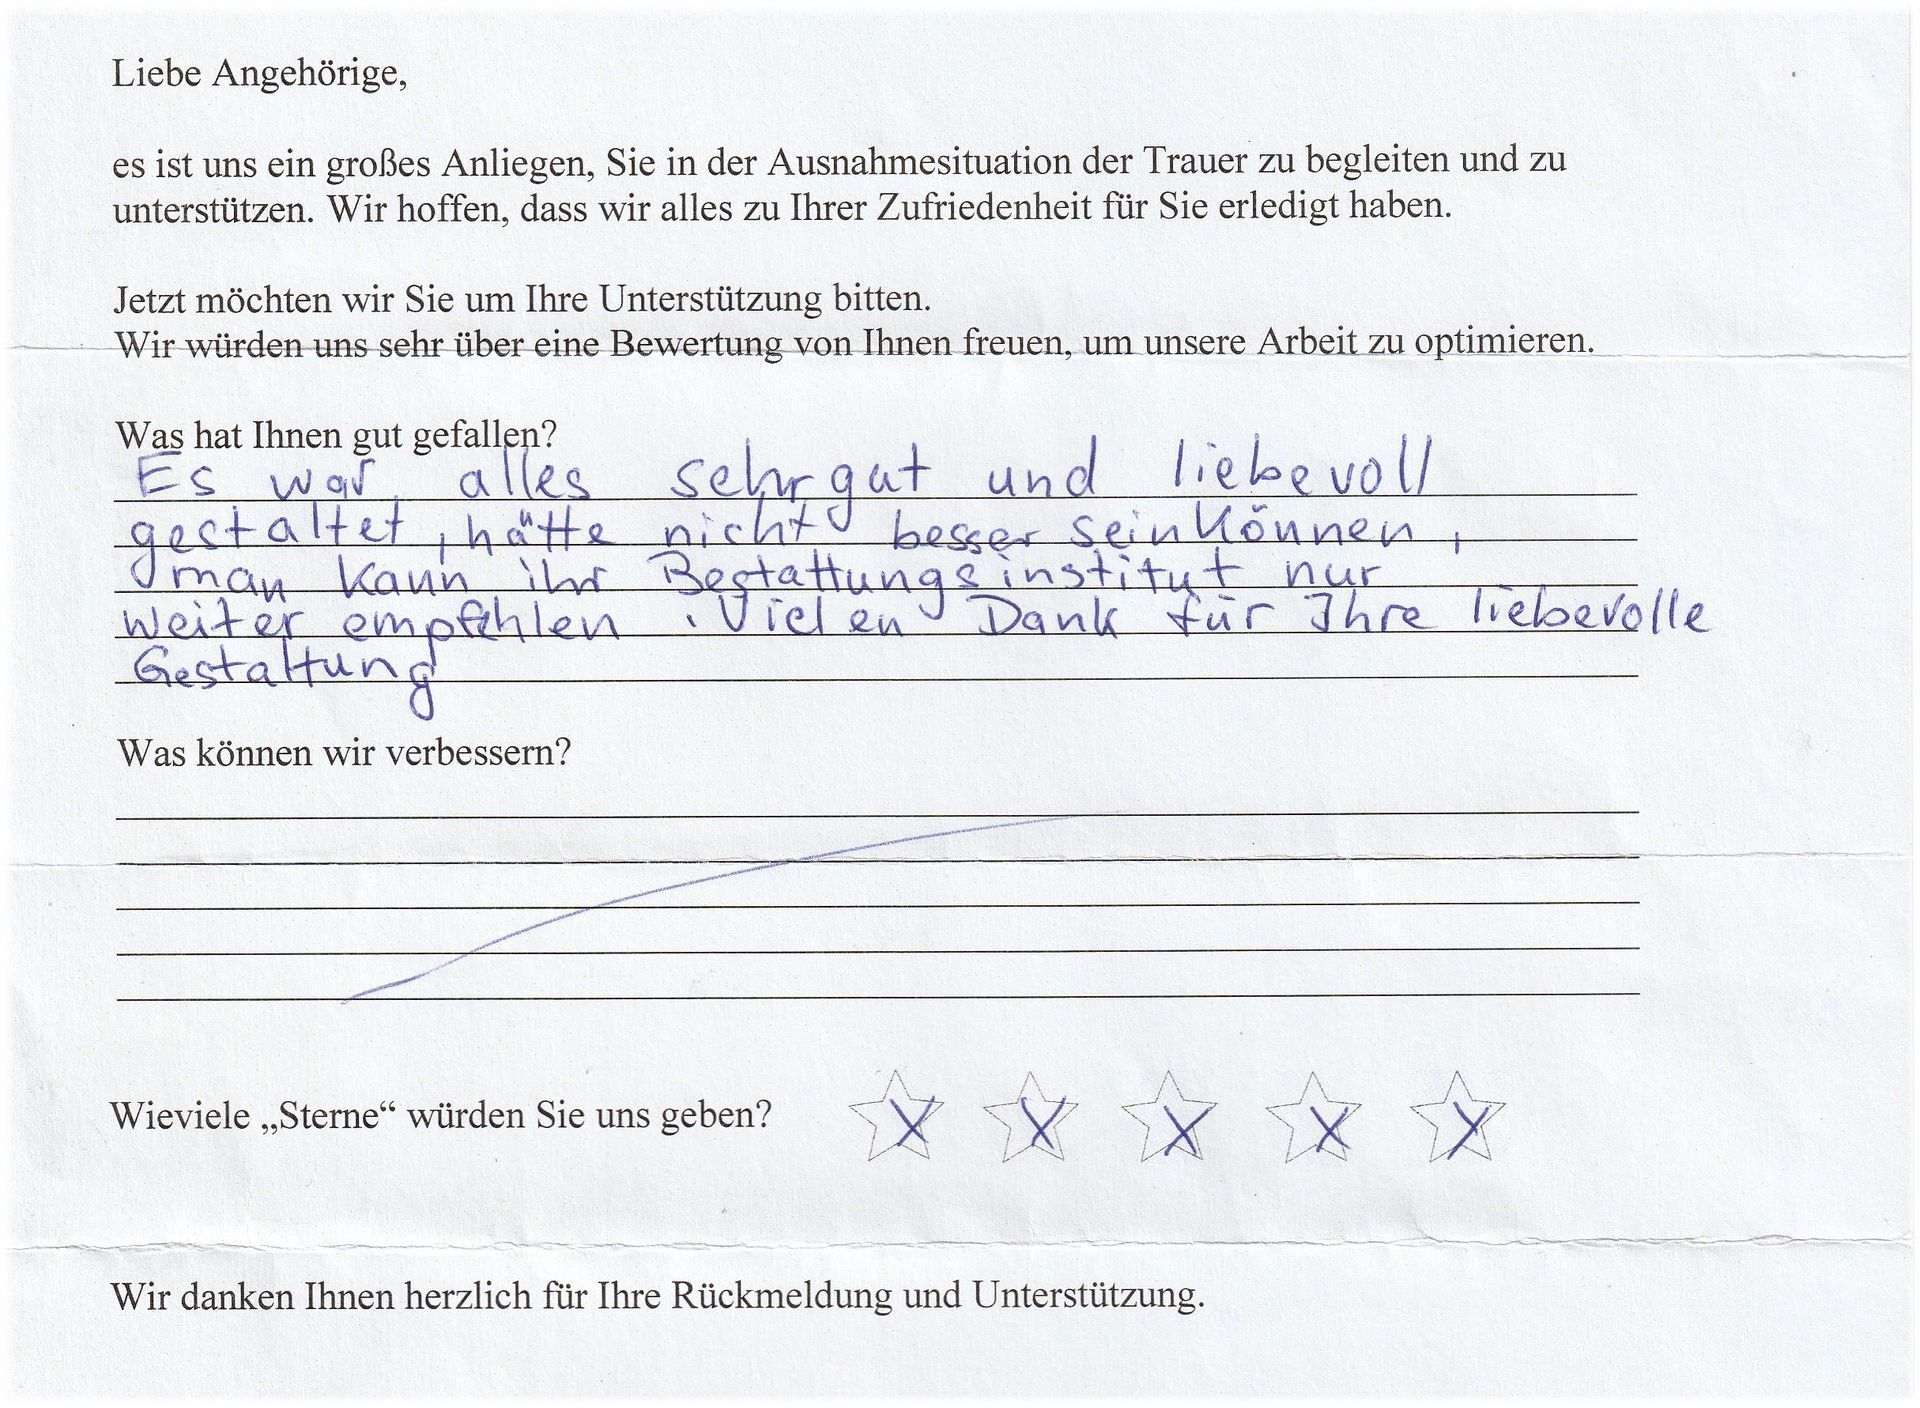 Liebe Angehörige,
es ist uns ein großes Anliegen, Sie in der Ausnahmesituation der Trauer zu begleiten und zu
unterstützen. Wir hoffen, dass wir alles zu Ihrer Zufriedenheit für Sie erledigt haben.
Jetzt möchten wir Sie um Ihre Unterstützung bitten.
Wir würden uns sehr über eine Bewertung von Ihnen freuen, um unsere Arbeit zu optimieren.
Was hat Ihnen gut gefallen?
Es war alles sehr gut und liebevoll
gestaltet, hätte nicht besser sein können,
man kann ihr Bestattungsinstitut nur
weiter empfehlen. Vielen Dank für Ihre liebevolle
Gestaltung
Was können wir verbessern?
Wieviele „Sterne“ würden Sie uns geben? X X X X X
Wir danken Ihnen herzlich für Ihre Rückmeldung und Unterstützung.